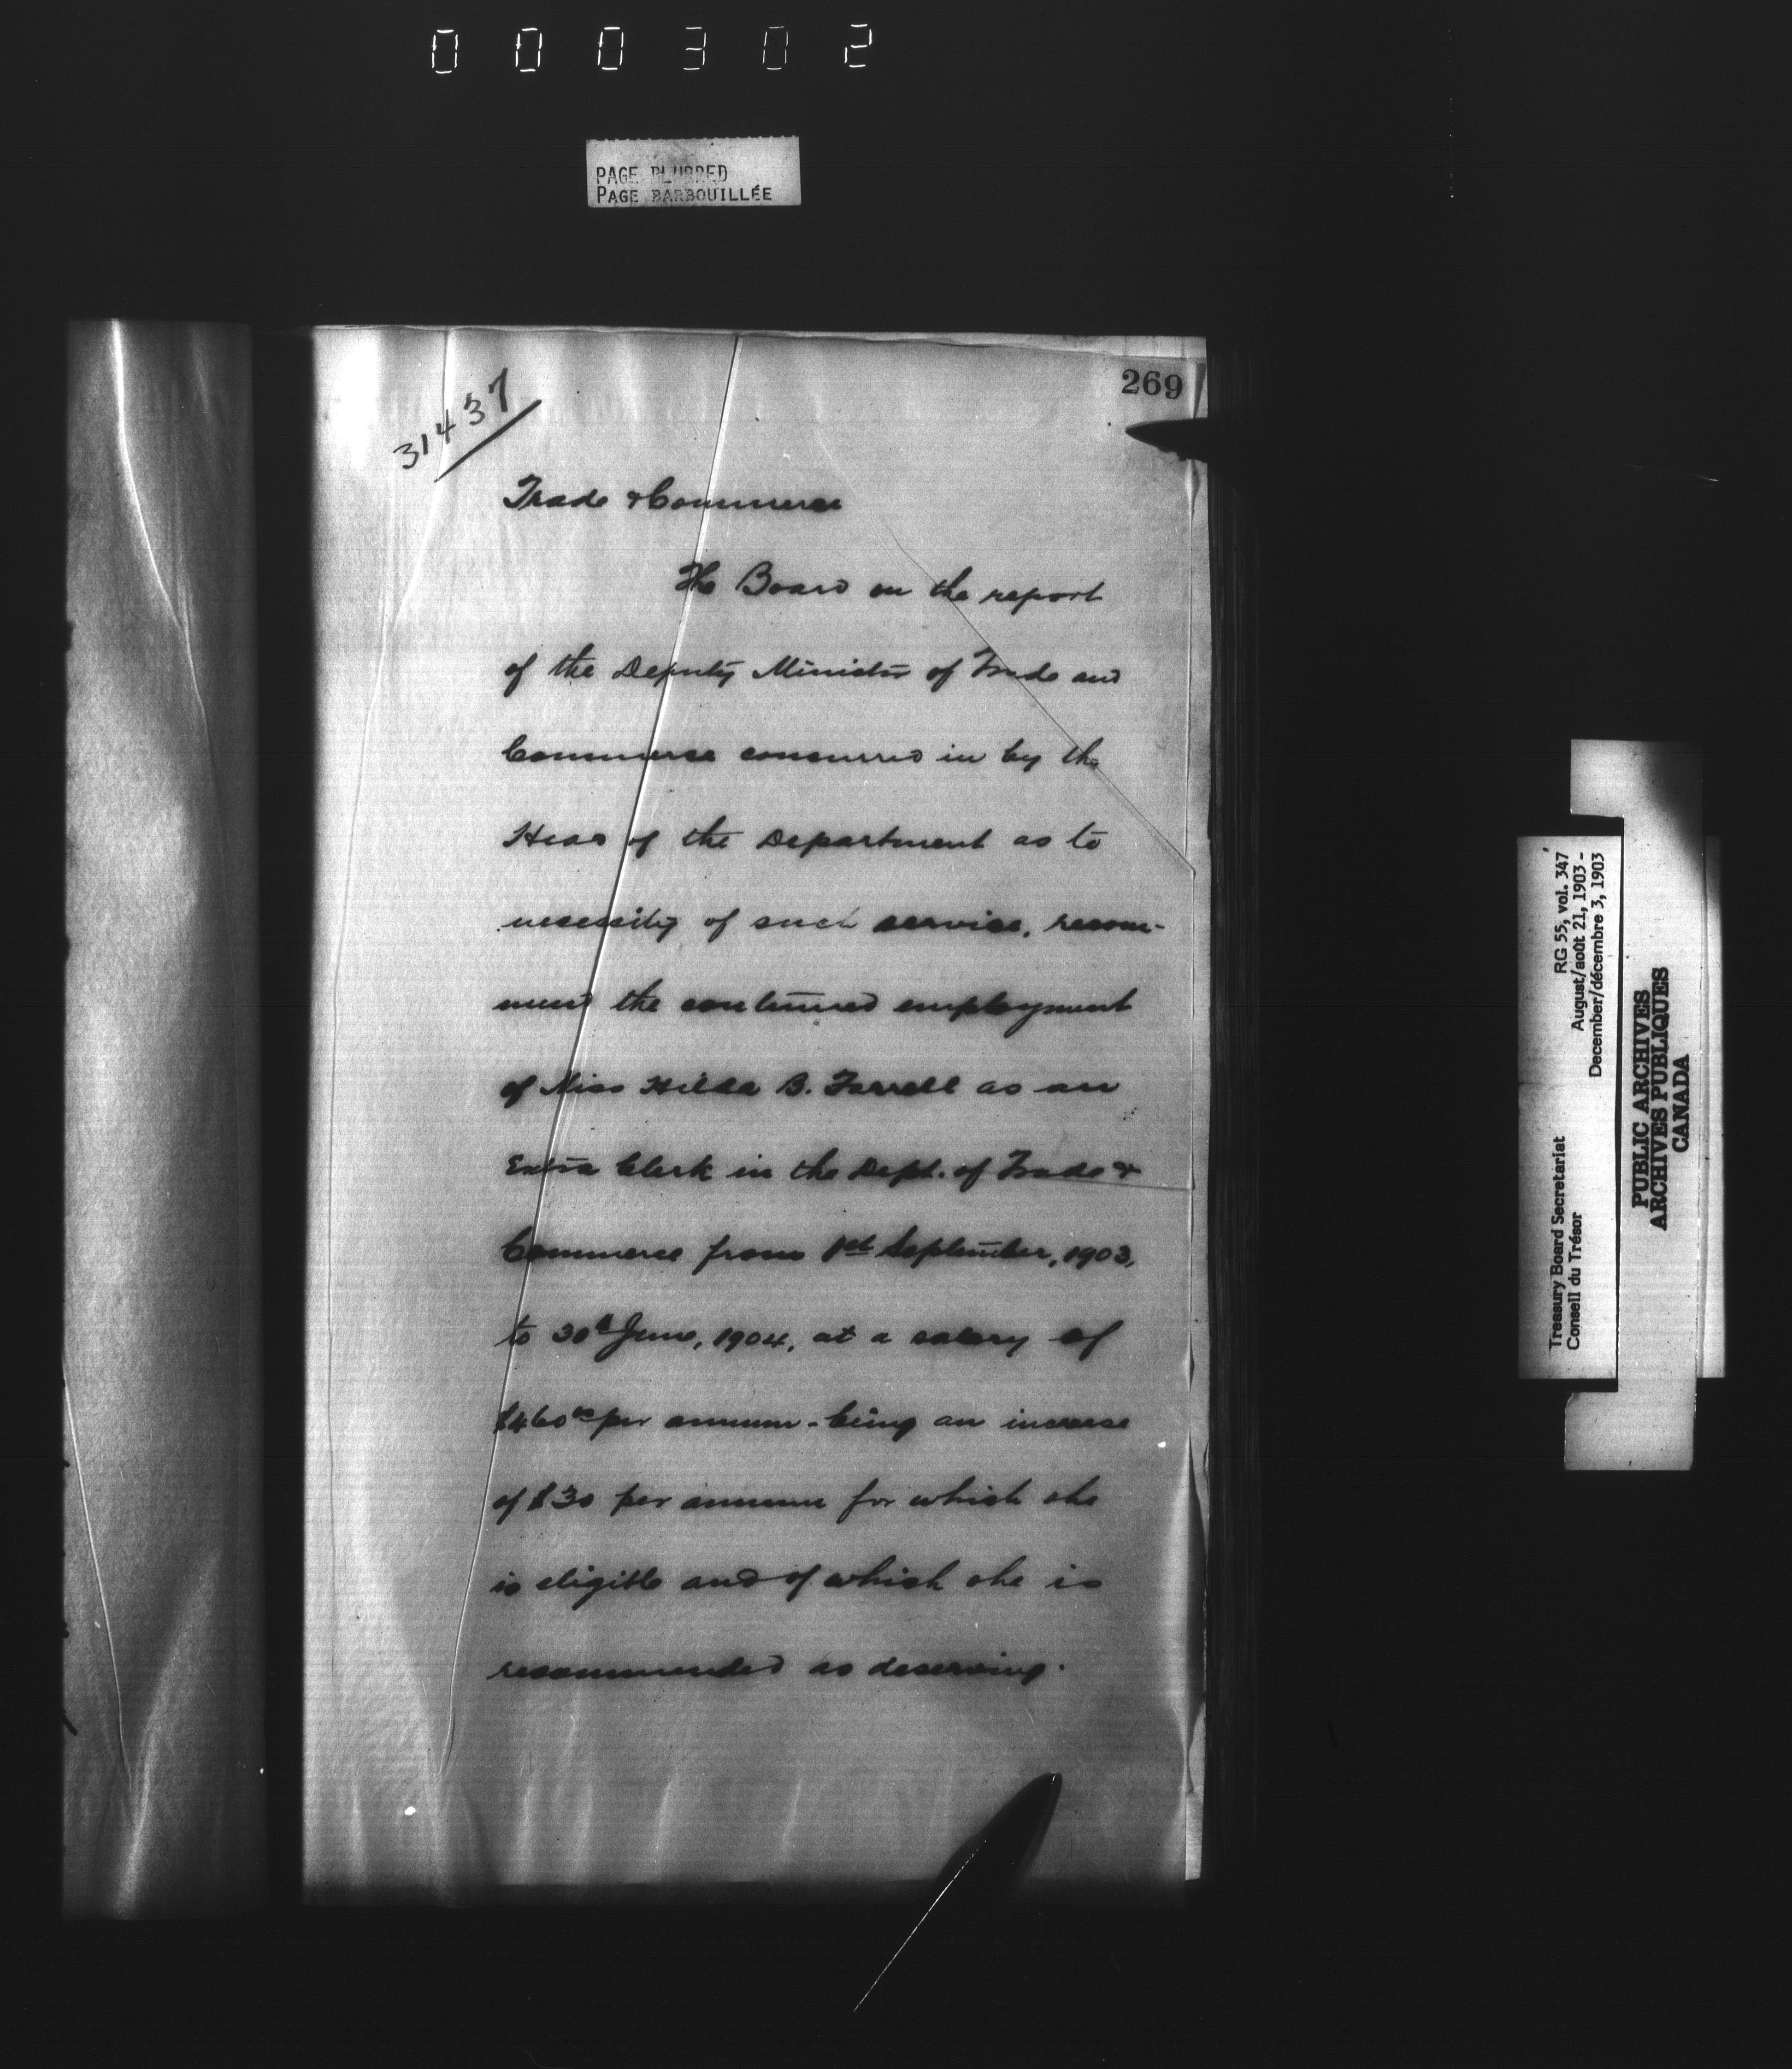 000302
PAGE BLURRED
PAGE BARBOUILLÉE
269
31437
Trade & Commerce
The Board on the report
of the Deputy Minister of Trade and
Commerce concurred in by the
Head of the Department as to
necessity of such service, recom-
mend the continued employment
of Miss Hilda B. Farrell as an
Extra Clerk in the Dept. of Trade &
Commerce from 1st September, 1903,
to 30th June, 1904, at a salary of
$460.00 per annum - being an increase
of $30 per annum for which she
is eligible and of which she is
recommended as deserving.
Treasury Board Secretariat RG 55, vol. 347
Conseil du Trésor August/août 21, 1903 -
December/décembre 3, 1903
PUBLIC ARCHIVES
ARCHIVES PUBLIQUES
CANADA